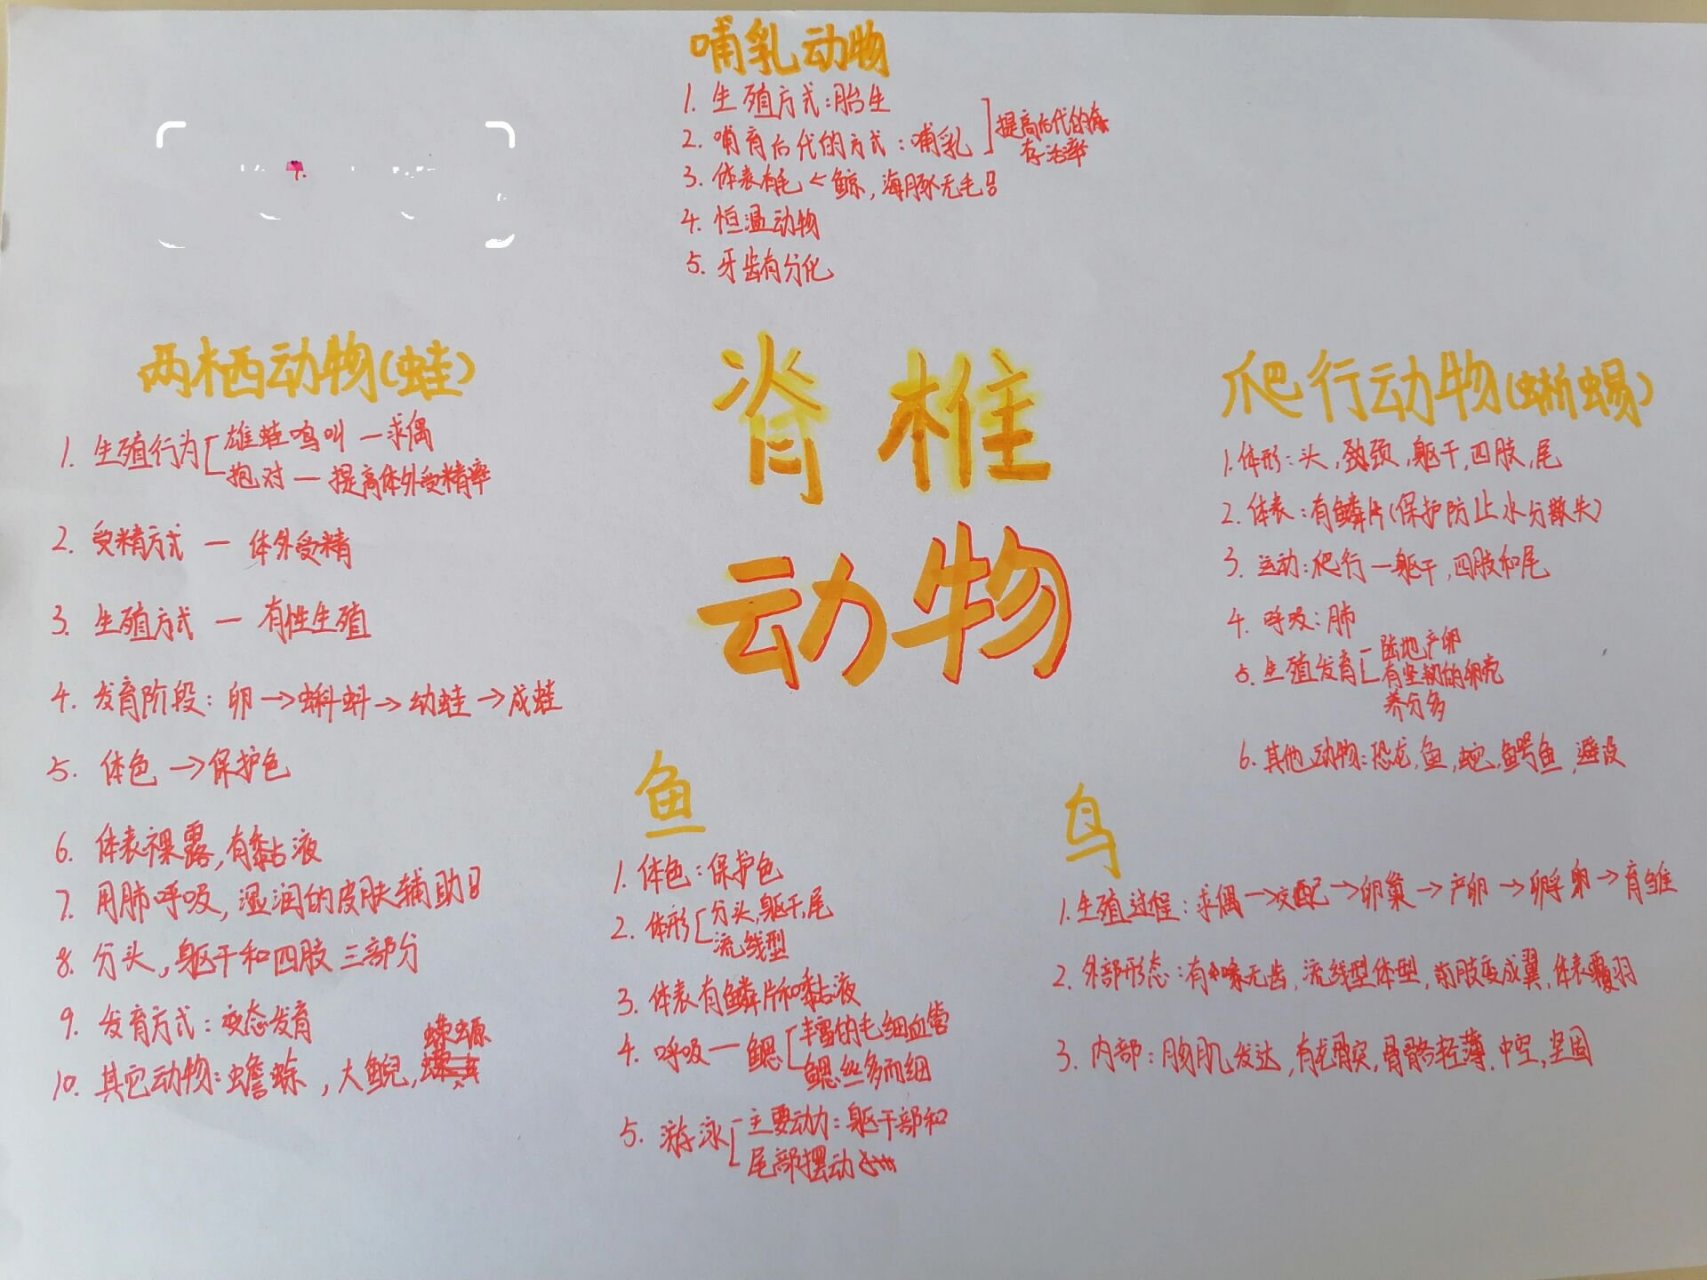 哺乳动物
1. 生殖方式:胎生
2. 哺育后代的方式:哺乳
提高后代的
存活率
3. 体表有毛<鲸,海豚无毛
4. 恒温动物
5. 牙齿有分化
脊椎
动物
两栖动物(蛙)
1. 生殖行为
雄蛙鸣叫—求偶
抱对—提高体外受精率
2. 受精方式—体外受精
3. 生殖方式—有性生殖
4. 发育阶段:卵→蝌蚪→幼蛙→成蛙
5. 体色→保护色
6. 体表裸露,有黏液
7. 用肺呼吸,湿润的皮肤辅助
8. 分头,躯干和四肢三部分
9. 发育方式:变态发育
10. 其它动物:蟾蜍,大鲵,
蝾螈
爬行动物(蜥蜴)
1. 体形:头,颈,躯干,四肢,尾
2. 体表:有鳞片(保护防止水分散失)
3. 运动:爬行—躯干,四肢和尾
4. 呼吸:肺
5. 生殖发育
陆地产卵
有坚韧的卵壳
养分多
6. 其他动物:恐龙,鱼,蛇,鳄鱼,避役
鱼
1. 体色:保护色
2. 体形
分头,躯干,尾
流线型
3. 体表有鳞片和黏液
4. 呼吸—鳃
丰富的毛细血管
鳃丝多而细
5. 游泳
主要动力:躯干部和
尾部摆动
鸟
1. 生殖过程:求偶→交配→卵巢→产卵→孵卵→育雏
2. 外部形态:有喙无齿,流线型体型,前肢变成翼,体表覆羽
3. 内部:胸肌发达,有龙骨突,骨骼轻薄.中空,坚固